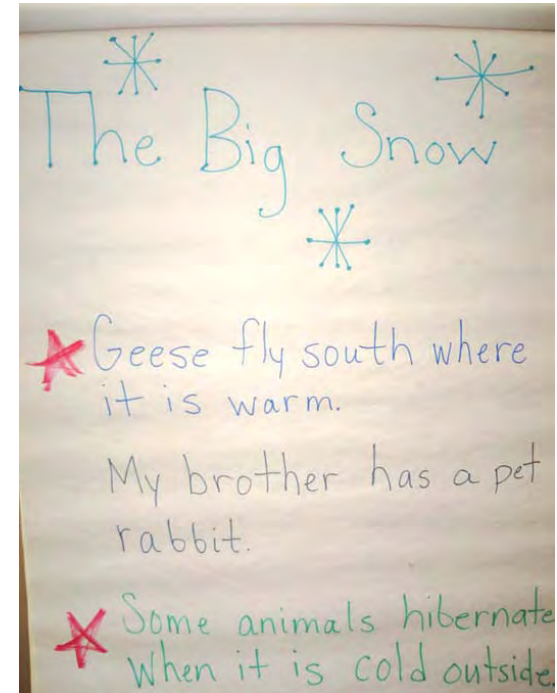 The Big Snow
Geese fly south where
it is warm.
My brother has a pet
rabbit.
Some animals hibernate
when it is cold outside.